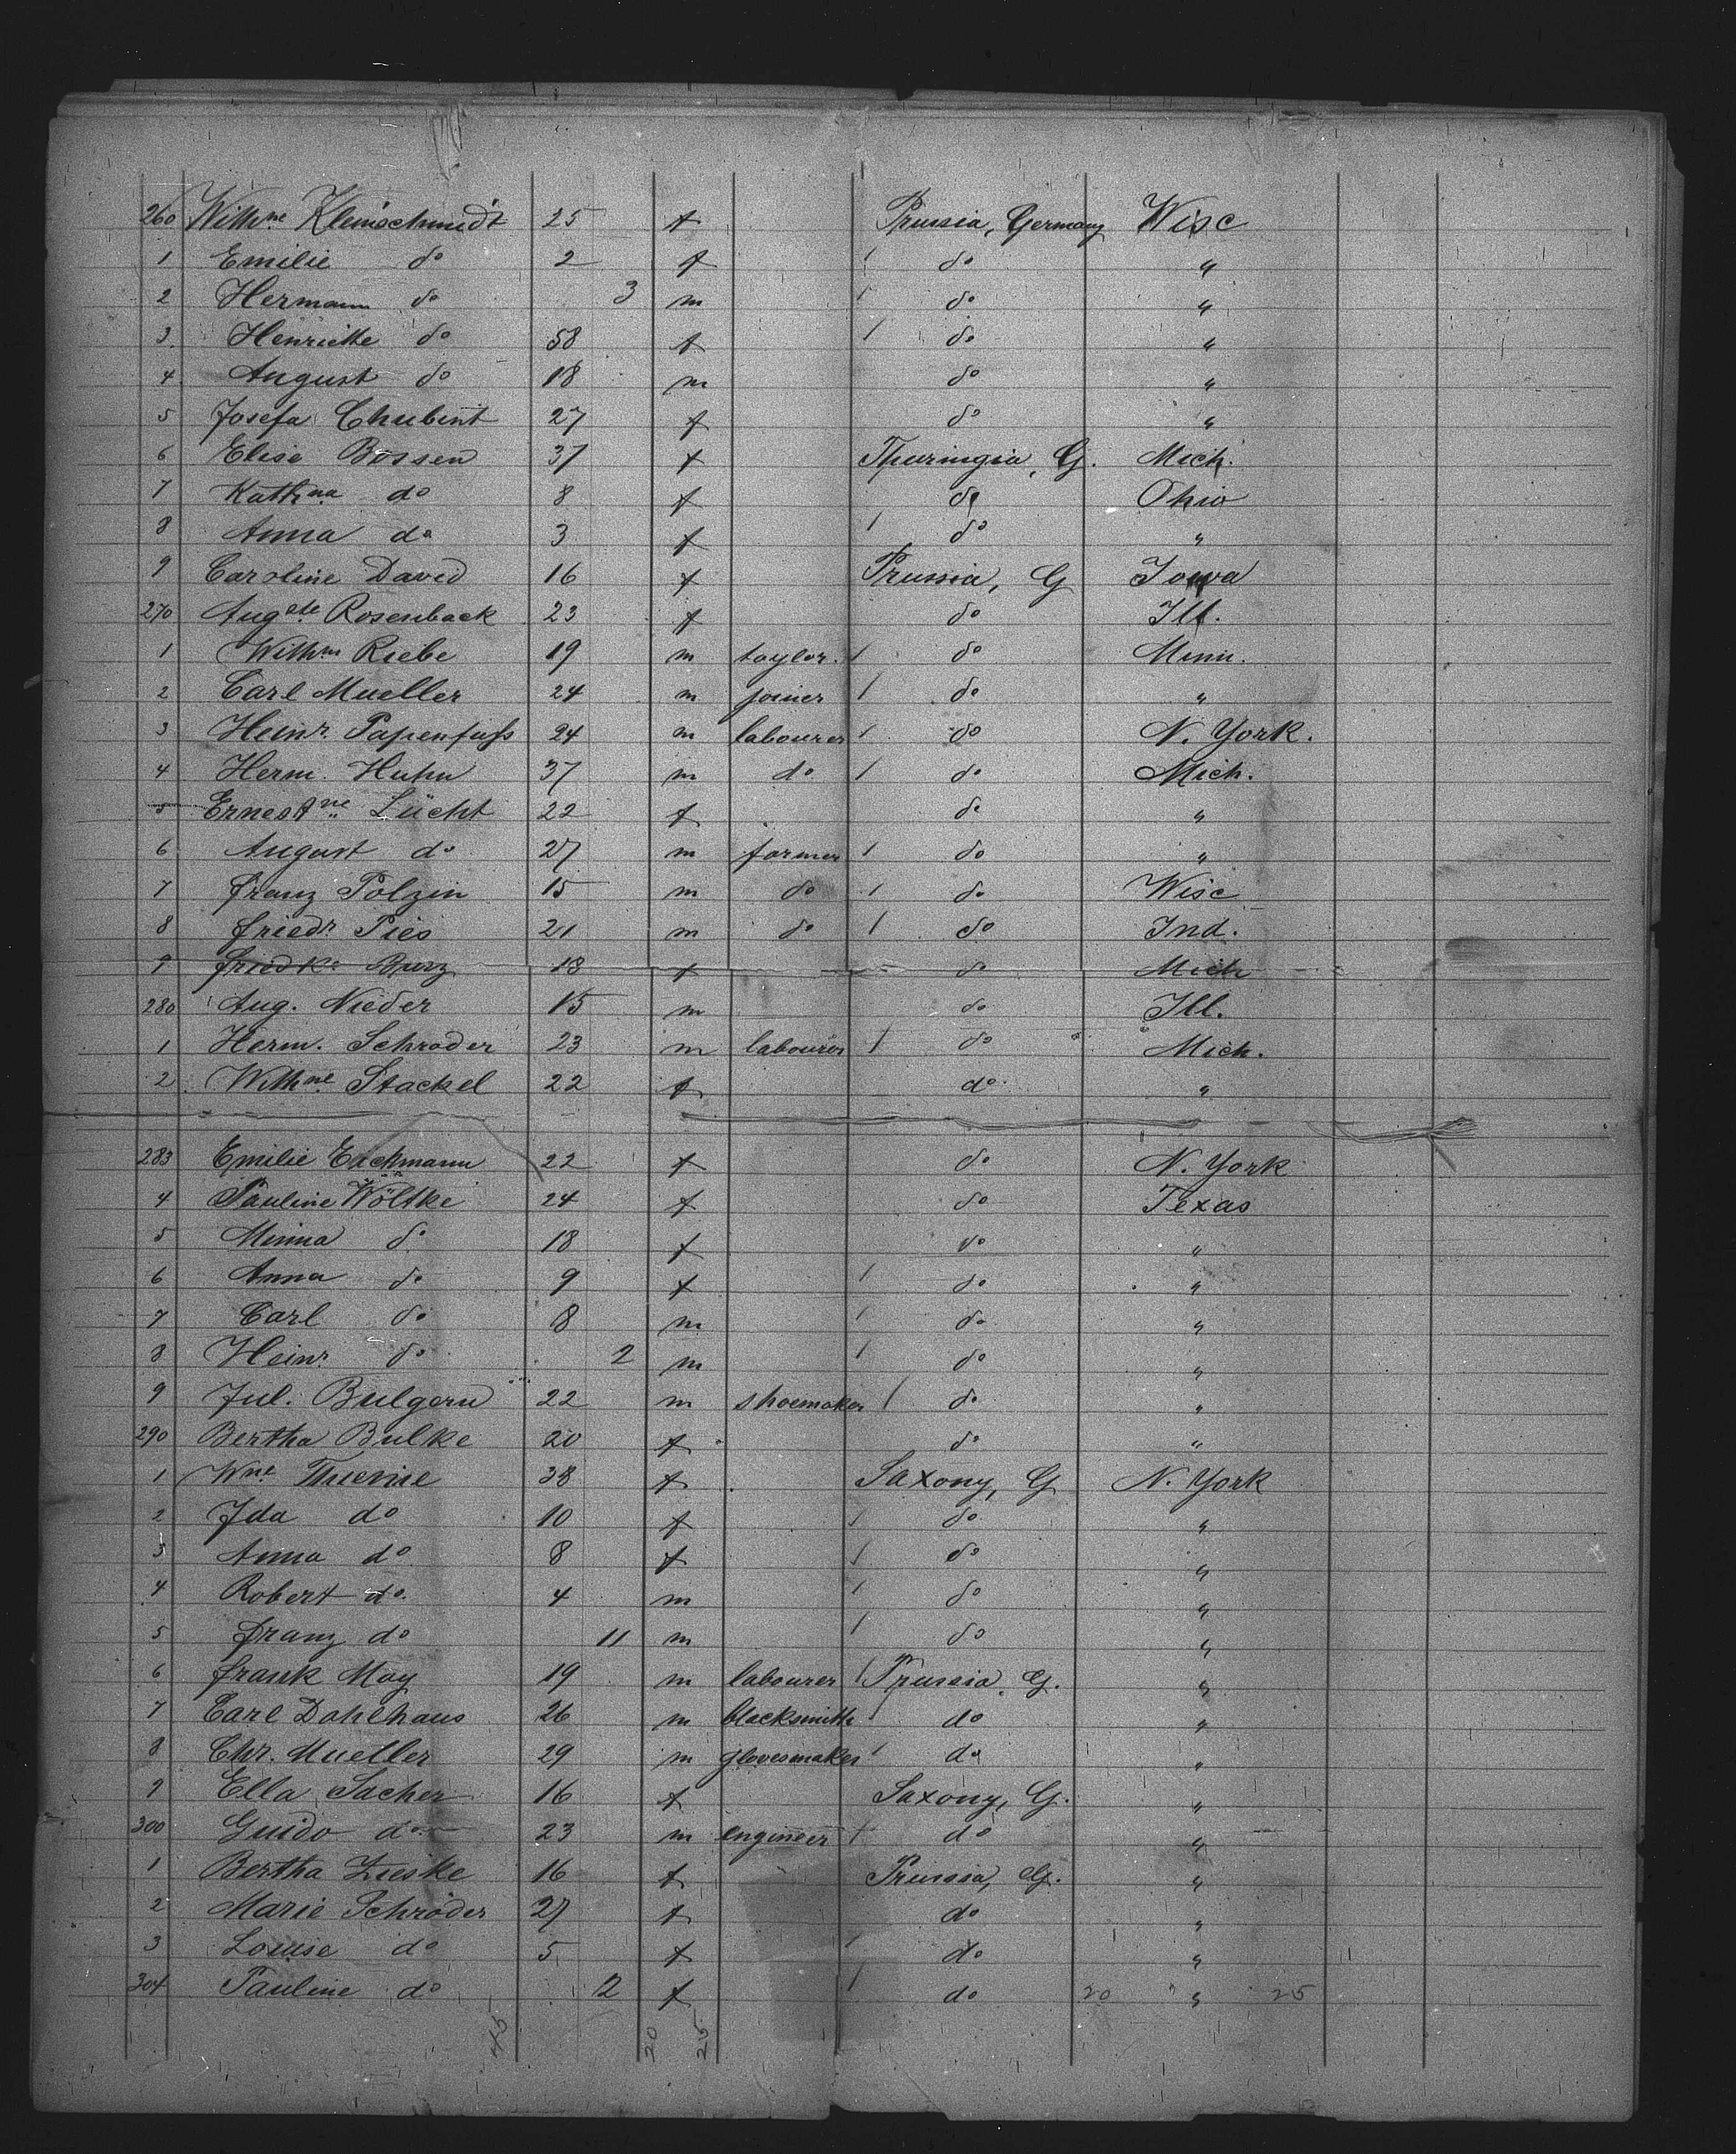 260 Wilhne Kleinschmidt 25 f Prussia, Germany Wisc
1 Emilie do 2 f / do "
2 Hermann do 3 m / do "
3. Henriette do 58 f / do "
4 August do 18 m do "
5 Josefa Chubint 27 f do "
6 Elise Bossen 37 f Thuringia, G. Mich.
7 Kathna do 8 f do Ohio
8 Anna do 3 f / do "
9 Caroline David 16 f Prussia, G Iowa
270 Augste Rosenback 23 f do Ill.
1 Wilhm Riebe 19 m taylor / do Minn.
2 Carl Mueller 24 m joiner / do "
3 Heinr. Papenfuss 24 m labourer / do N. York.
4 Herm. Huhn 37 m do / do Mich.
5 Ernestne Lücht 22 f do "
6 August do 27 m farmer / do "
7 Franz Polzin 15 m do / do Wisc
8 Friedr. Pies 21 m do / do Ind.
9 Friedke 18 f do Mich
280 Aug. Nieder 15 m do Ill.
1 Herm. Schroder 23 m labourer / do Mich.
2 Wilhne Stackel 22 f do "
283 Emilie Eickmann 22 f do N. York
4 Pauline Wöltke 24 f do Texas
5 Minna do 18 f do "
6 Anna do 9 f / do "
7 Carl do 8 m / do "
8 Heinr do 2 m / do "
9 Jul. Bulgern 22 m shoemaker / do "
290 Bertha Bulke 20 f do "
1 Wne Thieme 38 f Saxony, G N. York
2 Ida do 10 f / do "
3 Anna do 8 f / do "
4 Robert do. 4 m / do "
5 Franz do 11 m / do "
6 Frank May 19 m labourer / Prussia, G. "
7 Carl Dahlhaus 26 m blacksmith / do "
8 Chr. Mueller 29 m glovesmaker / do "
9 Ella Sacher 16 f Saxony, G. "
300 Guido do 23 m engineer / do "
1 Bertha Zieske 16 f Prussia, G. "
2 Marie Schröder 27 f do "
3 Louise do 5 f / do "
304 Pauline do 2 f / do 20 " 25
45 20 25